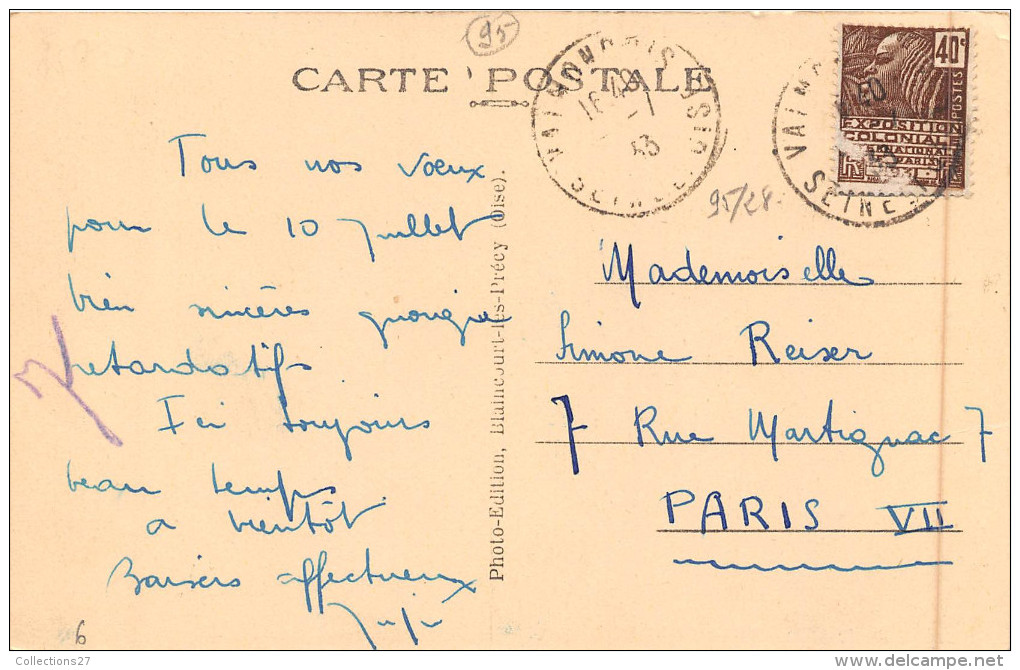 95
CARTE POSTALE
VALMONDOIS
16
33
SEINE
40c
POSTES
EXPOSITION
COLONIALE
INTERNATIONALE
PARIS
SEINE
95/28
Tous nos vœux
pour le 10 juillet
bien sincères quoique
retardatifs
Ici toujours
beau temps
a bientôt
Baisers affectueux
Photo-Edition, Blaincourt-lès-Précy (Oise).
Mademoiselle
Simone Reiser
7 Rue Martignac 7
PARIS VII
6
Collections27
www.delcampe.net